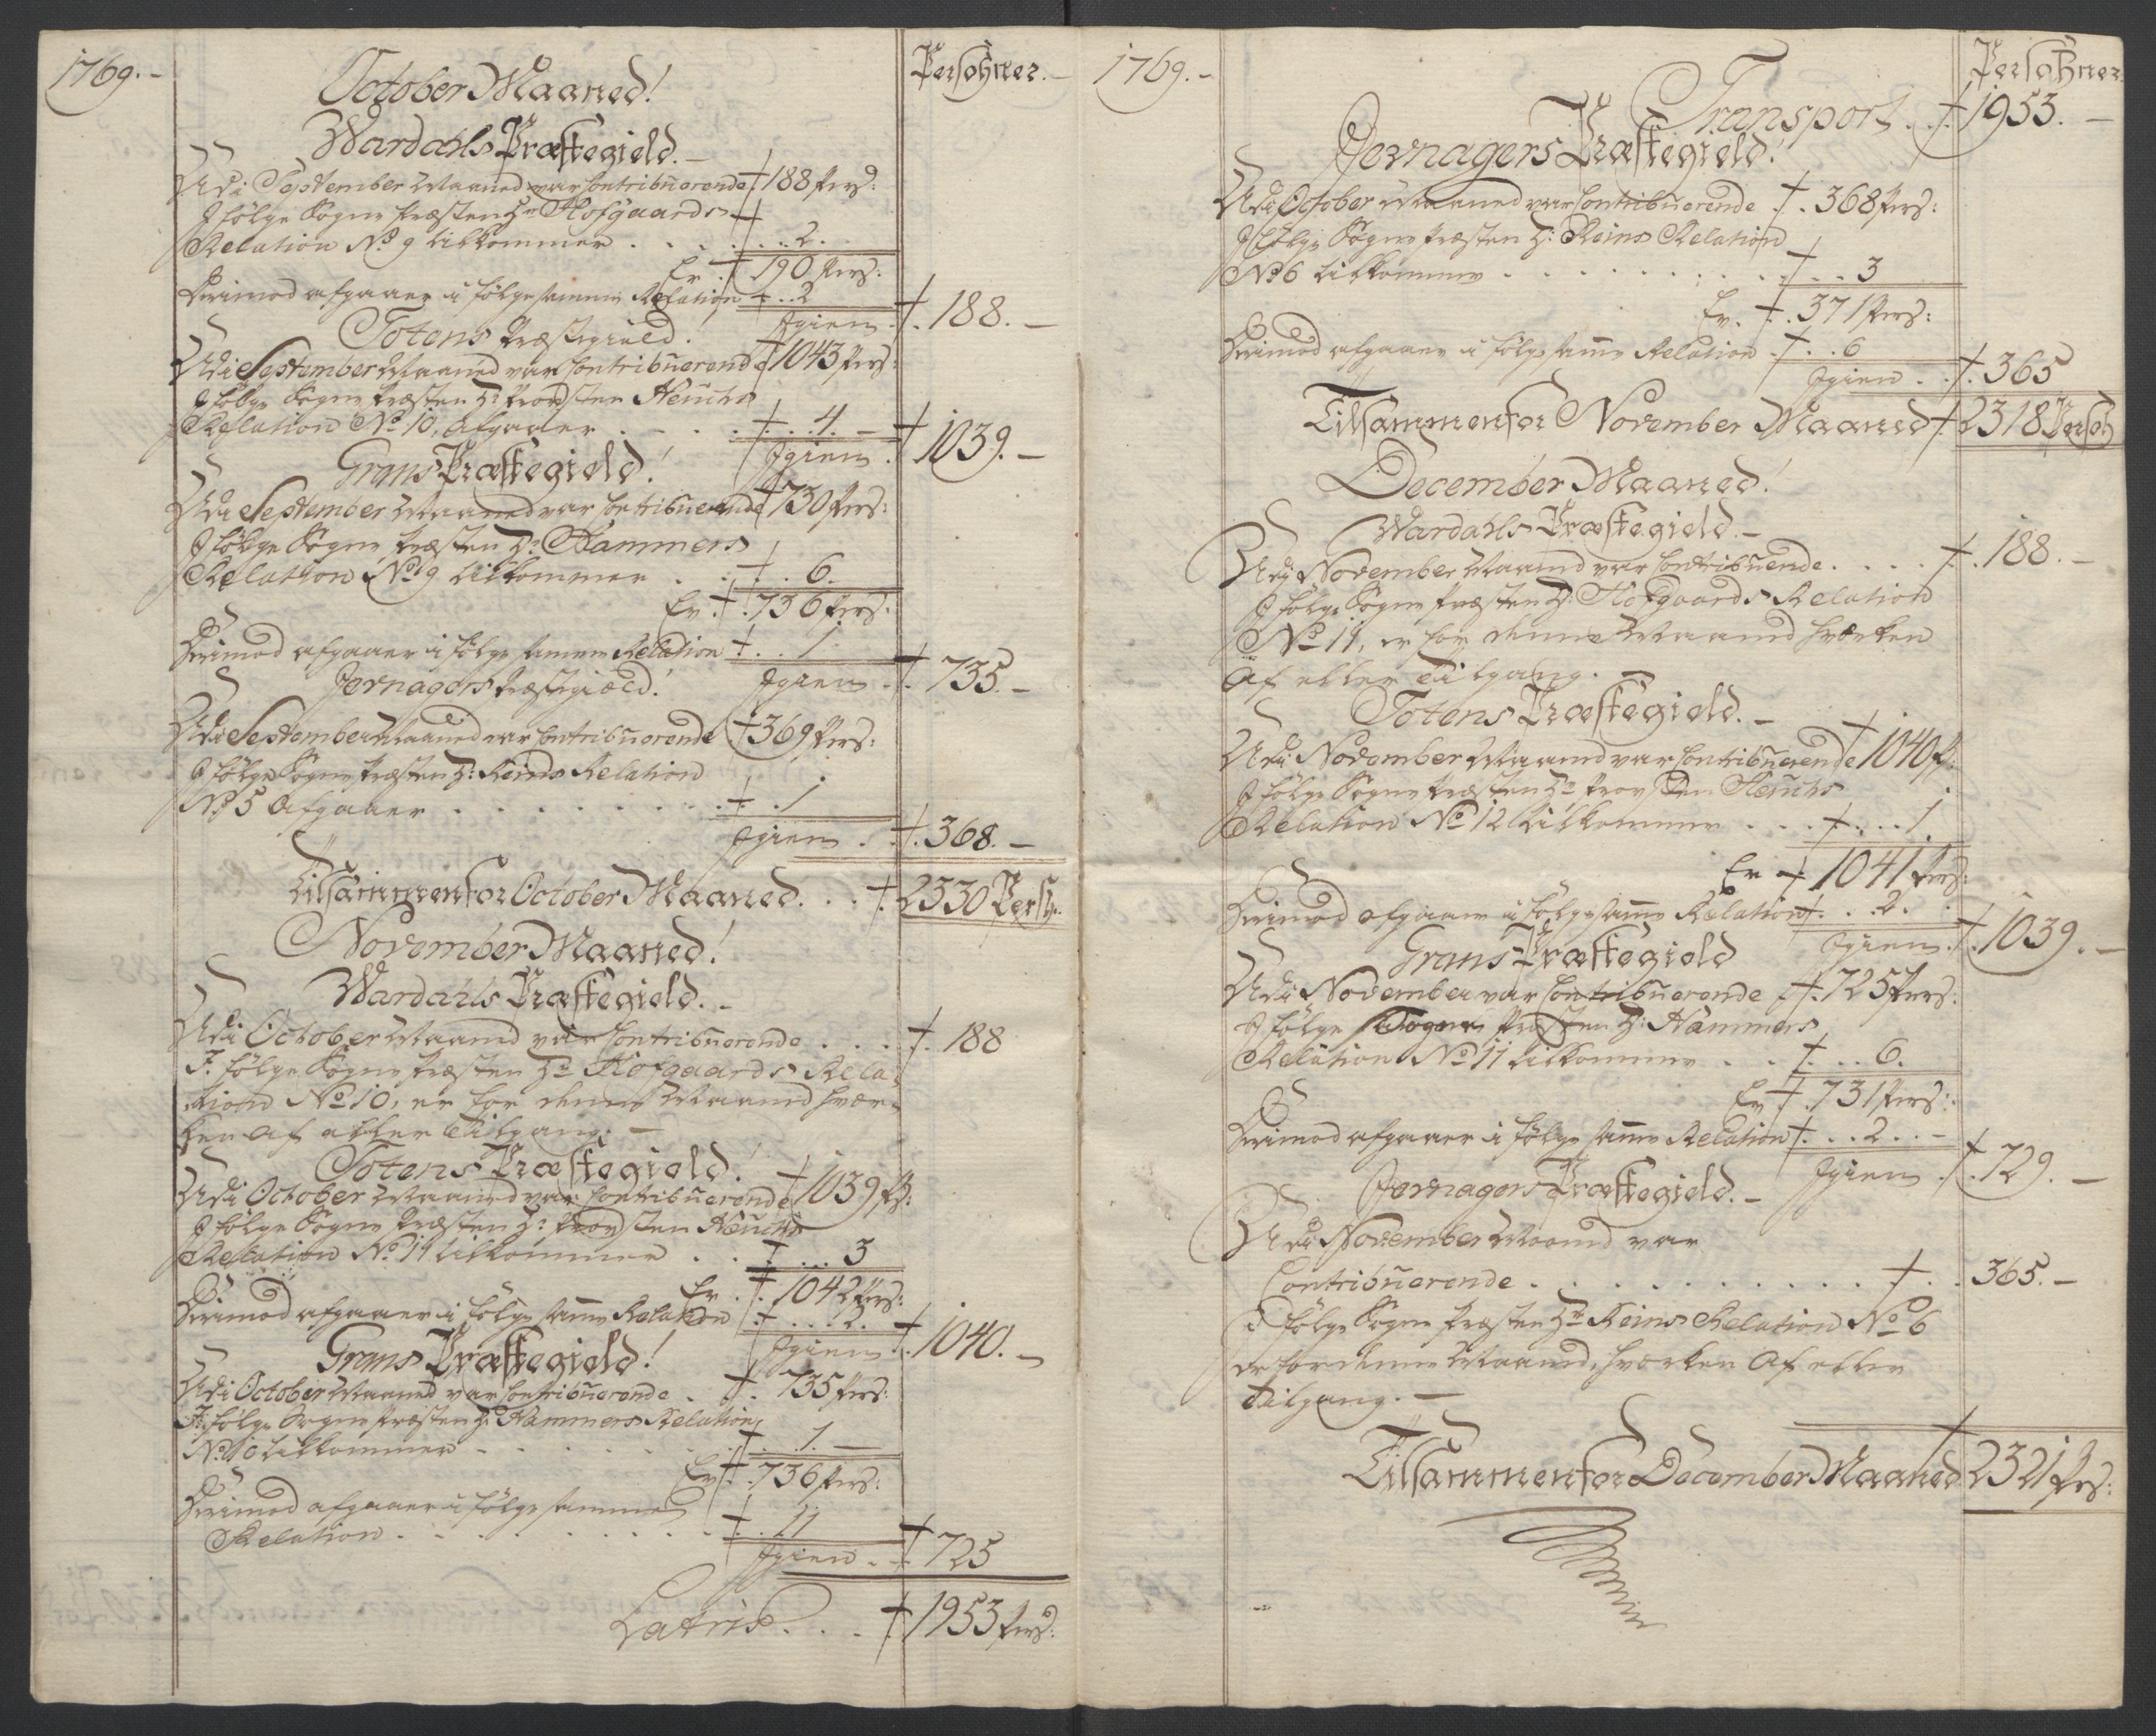 1769.-
Persohner.-
October Maaned!
Wardahls Præstegield.-
Udi September Maaned var Contribuerende 188 Pers:
I følge Sogne Præsten Hr Hofgaards
Relation No 9 tilkommer . . . . . 2.
Er 190 Pers:
Derimod afgaaer i følge samme Relation . . 2
Igien . 188.-
Totens Præstegield!
Udi September Maaned var Contribuerende 1043 Pers:
I følge Sogne Præsten Hr Provsten Heuchs
Relation No 10, Afgaaer . . . . . 4.-
Igien . 1039.-
Grans Præstegield!
Udi September Maaned var Contribuerende 730 Pers:
I følge Sogne Præsten Hr Hammers
Relation No 9 tilkommer . . . 6.
Er . 736 Pers:
Derimod afgaaer i følge samme Relation . . 1
Igien . 735.-
Jevnagers Præstegield!
Udi September Maaned var Contribuerende 369 Pers:
I følge Sogne Præsten Hr: Reins Relation
No 5 Afgaaer . . . . . . . . 1
Igien . . 368.-
Tilsammen for October Maaned. . . 2330 Persh:
November Maaned!
Wardahls Præstegield.-
Udi October Maaned var Contribuerende . . . 188
I følge Sogne Præsten Hr Hofgaards Rela-
tion No 10, er for denne Maaned hver-
ken Af eller Tilgang. -
Totens Præstegield!
Udi October Maaned var Contribuerende 1039 Ps:
I følge Sogne Præsten Hr: Provsten Heuchs
Relation No 11 tilkommer . . . . . 3
Er . 1042 Pers:
Derimod afgaaer i følge samme Relation . . . 2.
Igien . 1040.-
Grans Præstegield!
Udi October Maaned var Contribuerende . . 735 Pers:
I følge Sogne Præsten Hr: Hammers Relation
No 10 tilkommer . . . . . . . 1.-
Er . 736 Pers:
Derimod afgaaer i følge samme
Relation . . . . . . . . . 11
Igien . . 725
Latris. . . 1953 Pers:
1769.-
Persohner
Transport . . 1953.-
Jevnagers Præstegield!
Udi October Maaned var Contribuerende . . 368 Pers:
I følge Sogne Præsten Hr: Reins Relation
No 6 tilkommer . . . . . . . . . 3
Er. . 371 Pers:
Derimod afgaaer i følge samme Relation . . . 6
Igien . . 365
Tilsammen for November Maaned 2318 Persoh
December Maaned!
Wardahls Præstegield.-
Udi November Maaned var Contribuende. . . . . 188.-
I følge Sogne Præsten Hr: Hofgaards Relation
No 11, er for denne Maaned hverken
Af eller Tilgang. -
Totens Præstegield.-
Udi November Maaned var Contribuerende 1040 P:
I følge Sogne Præsten Hr Provsten Heuchs
Relation No 12 tilkommer . . . . . . 1.
Er 1041 Pers:
Derimod afgaaer i følge samme Relation . . 2.
Igien . 1039.-
Grans Præstegield
Udi November var Contribuerende . . 725 Pers:
I følge Sogne Præsten Hr: Hammers
Relation No 11 tilkommer . . . . . 6.
Er . 731 Pers:
Derimod afgaaer i følge samme Relation . . . 2. . -
Igien . . 729.-
Jevnagers Præstegield.-
Udi November Maaned var
Contribuerende . . . . . . . . . . . . 365.-
I følge Sogne Præsten Hr Reins Relation No 6
er for denne Maaned, hverken Af eller
Tilgang. -
Tilsammen for December Maaned 2321 Prs: